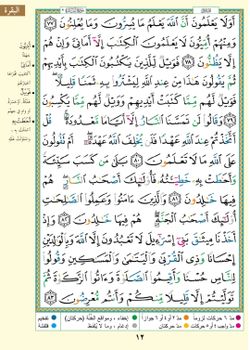 البقرة
أَوَلَا يَعْلَمُونَ أَنَّ ٱللَّهَ يَعْلَمُ مَا يُسِرُّونَ وَمَا يُعْلِنُونَ ٧٧
وَمِنْهُمْ أُمِّيُّونَ لَا يَعْلَمُونَ ٱلْكِتَٰبَ إِلَّآ أَمَانِيَّ وَإِنْ هُمْ
إِلَّا يَظُنُّونَ ٧٨ فَوَيْلٌ لِّلَّذِينَ يَكْتُبُونَ ٱلْكِتَٰبَ بِأَيْدِيهِمْ
ثُمَّ يَقُولُونَ هَٰذَا مِنْ عِندِ ٱللَّهِ لِيَشْتَرُوا۟ بِهِۦ ثَمَنًا قَلِيلًا
فَوَيْلٌ لَّهُم مِّمَّا كَتَبَتْ أَيْدِيهِمْ وَوَيْلٌ لَّهُم مِّمَّا
يَكْسِبُونَ ٧٩ وَقَالُوا۟ لَن تَمَسَّنَا ٱلنَّارُ إِلَّآ أَيَّامًا مَّعْدُودَةً قُلْ
أَتَّخَذْتُمْ عِندَ ٱللَّهِ عَهْدًا فَلَن يُخْلِفَ ٱللَّهُ عَهْدَهُۥٓ أَمْ تَقُولُونَ
عَلَى ٱللَّهِ مَا لَا تَعْلَمُونَ ٨٠ بَلَىٰ مَن كَسَبَ سَيِّئَةً
وَأَحَٰطَتْ بِهِۦ خَطِيٓـَٔتُهُۥ فَأُو۟لَٰٓئِكَ أَصْحَٰبُ ٱلنَّارِ هُمْ
فِيهَا خَٰلِدُونَ ٨١ وَٱلَّذِينَ ءَامَنُوا۟ وَعَمِلُوا۟ ٱلصَّٰلِحَٰتِ
أُو۟لَٰٓئِكَ أَصْحَٰبُ ٱلْجَنَّةِ هُمْ فِيهَا خَٰلِدُونَ ٨٢ وَإِذْ
أَخَذْنَا مِيثَٰقَ بَنِىٓ إِسْرَٰٓءِيلَ لَا تَعْبُدُونَ إِلَّا ٱللَّهَ وَبِٱلْوَٰلِدَيْنِ
إِحْسَانًا وَذِى ٱلْقُرْبَىٰ وَٱلْيَتَٰمَىٰ وَٱلْمَسَٰكِينِ وَقُولُوا۟
لِلنَّاسِ حُسْنًا وَأَقِيمُوا۟ ٱلصَّلَوٰةَ وَءَاتُوا۟ ٱلزَّكَوٰةَ ثُمَّ
تَوَلَّيْتُمْ إِلَّا قَلِيلًا مِّنكُمْ وَأَنتُم مُّعْرِضُونَ ٨٣
١٢